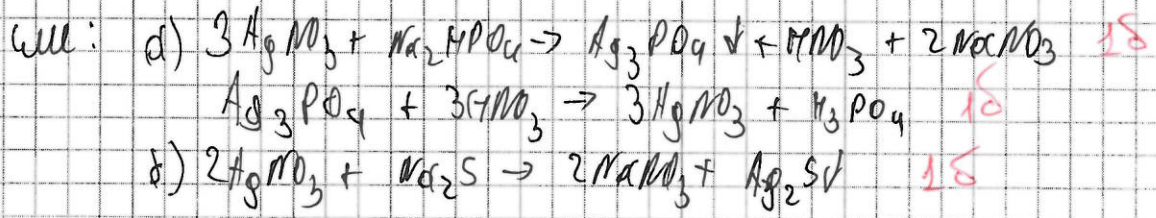 или: а) 3AgNO₃ + Na₂HPO₄ → Ag₃PO₄↓ + HNO₃ + 2NaNO₃ 1б
Ag₃PO₄ + 3HNO₃ → 3AgNO₃ + H₃PO₄ 1б
б) 2AgNO₃ + Na₂S → 2NaNO₃ + Ag₂S↓ 1б